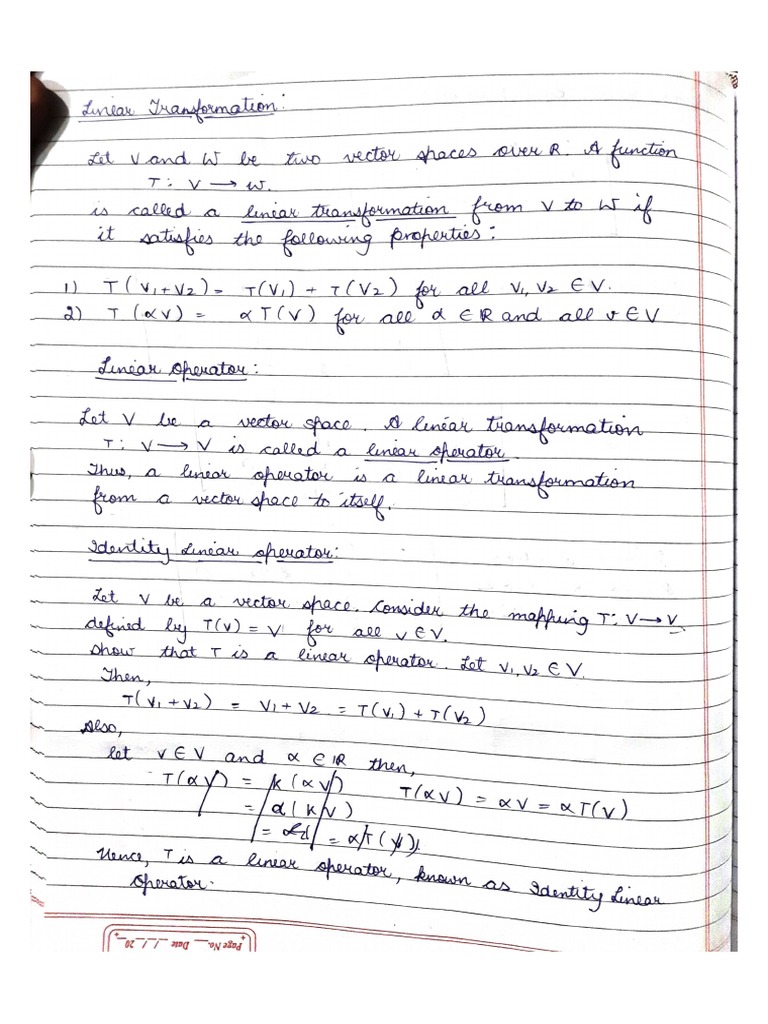 Linear Transformation:
Let V and W be two vector spaces over R. A function
T: V → W.
is called a linear transformation from V to W if
it satisfies the following properties:
1) T(V1+V2) = T(V1) + T(V2) for all V1, V2 ∈ V.
2) T(αV) = αT(V) for all α ∈ R and all v ∈ V
Linear Operator:
Let V be a vector space. A linear transformation
T: V → V is called a linear operator.
Thus, a linear operator is a linear transformation
from a vector space to itself.
Identity Linear Operator:
Let V be a vector space. Consider the mapping T: V → V
defined by T(v) = V for all v ∈ V.
Show that T is a linear operator. Let V1, V2 ∈ V.
Then,
T(V1 + V2) = V1 + V2 = T(V1) + T(V2)
Also,
let v ∈ V and α ∈ R then,
T(αV) = K(αV) T(αV) = αV = αT(V)
= α(KV)
= = αT(V)
Hence, T is a linear operator, known as Identity Linear
Operator.
Page No. Date / / 20